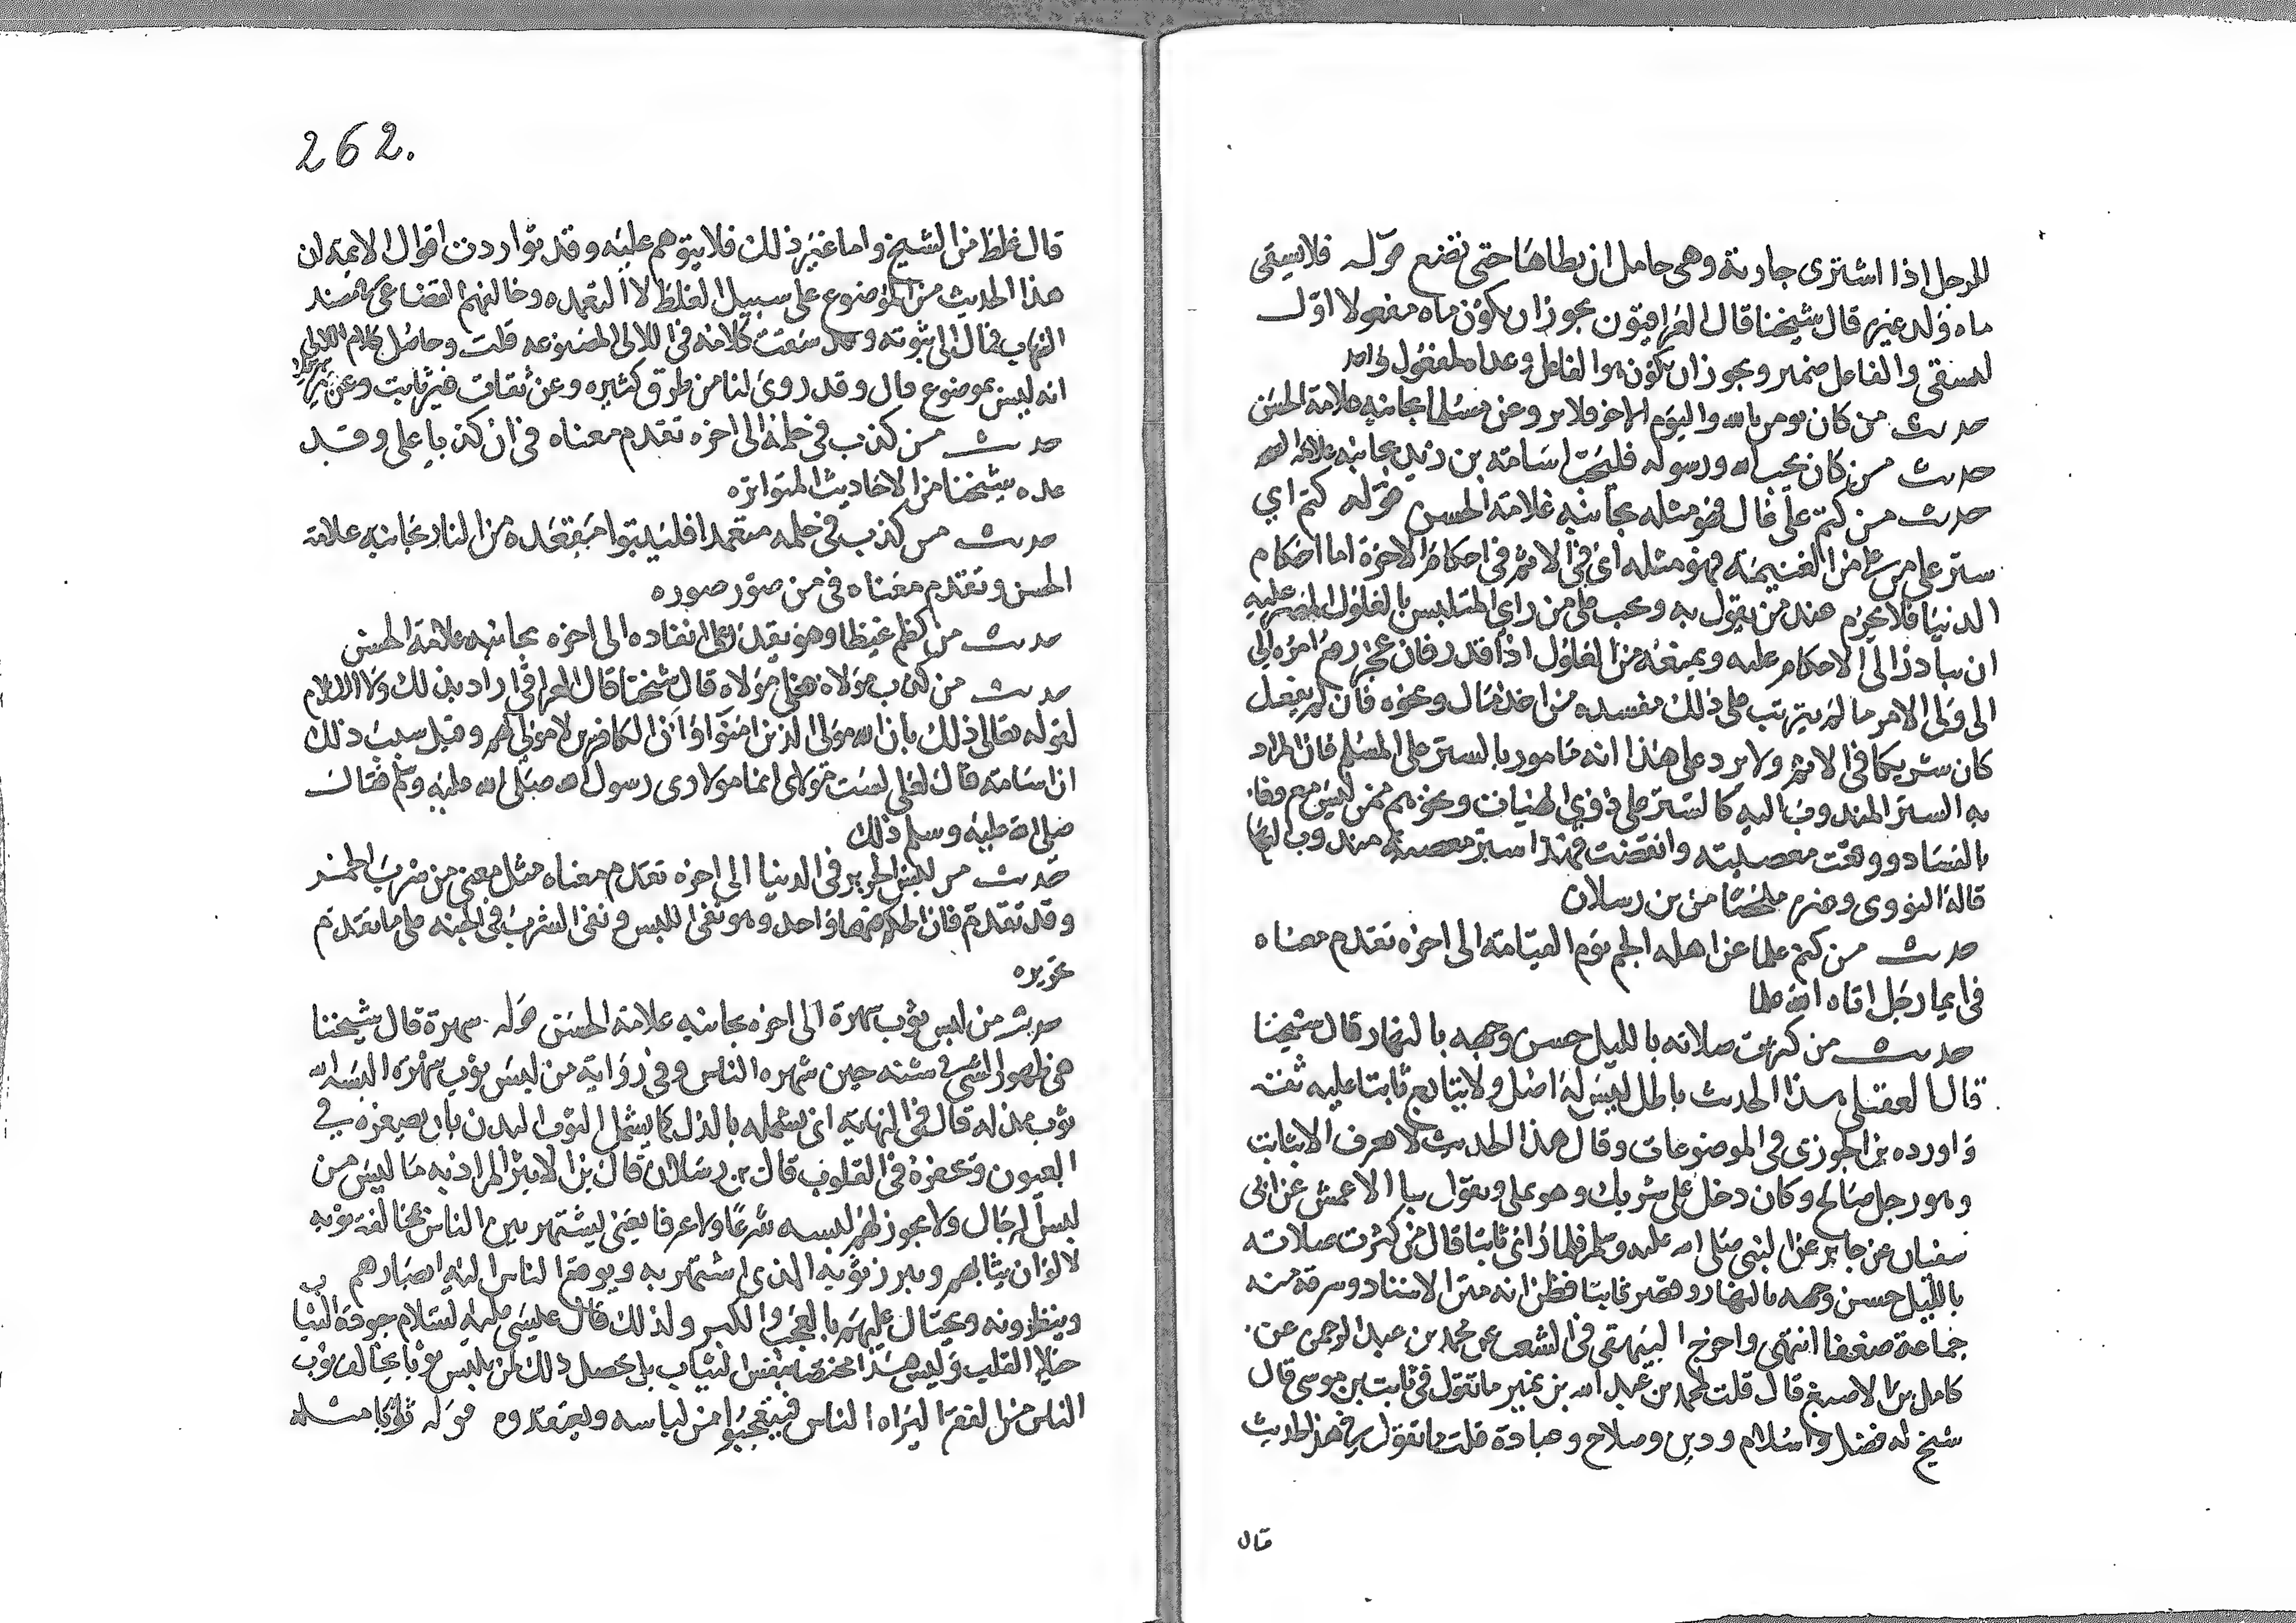 للرجل اذا اشترى جارية وهي حامل ان يطاها حتى تضع قوله فلا يسقي
ماه ولد غيره قال شيخنا قال العراقيون يجوز ان يكون ماه مفعولا اول
ليسقي والفاعل ضمير ويجوز ان يكون هو الفاعل وعداه لمفعول واحد
حديث من كان يومن بالله واليوم الاخر فلا يروعن مسلما بجانبه علامة الحسن
حديث من كان يحب الله ورسوله فليحب اسامة بن زيد بجانبه علامة
حديث من كتم على غال فهو مثله بجانبه علامة الحسن قوله كتم اي
ستر على من غل من الغنيمة فهو مثله اي في الاثم في احكام الاخرة اما احكام
الدنيا فلا يحرم عند من يقول به ويجب على من راي المتلبس بالغلول المصر عليه
ان يبادر الى الاحكام عليه ويمنعه من الغلول اذا قدر فان عجز رفع امره الى
الى ولي الامر ما لم يترتب على ذلك مفسده من اخذ مال ونحوه فان لم يفعل
كان شريكا في الاثم ولا يرد على هذا انه مامور بالستر على المسلم فان المراد
به الستر المندوب اليه كالستر على ذوي الهيات ونحوهم ممن ليس معروفا
بالفساد ووقعت معصيته وانقضت فهذا ستر معصية مندوب اليها
قاله النووي وغيره ملخصا من بن رسلان
حديث من كتم علما عن اهله الجم يوم القيامة الى اخره تقدم معناه
في ايما رجل اتاه الله علما
حديث من كثرت صلاته بالليل حسن وجهه بالنهار قال شيخنا
قال العقيلي هذا الحديث باطل ليس له اصل ولا يتابع ثابتا عليه ثقة
واورده بن الجوزي في الموضوعات وقال هذا الحديث لا يعرف الا بثابت
وهو رجل صالح وكان دخل على شريك وهو يملي ويقول ثنا الاعمش عن ابي
سفيان عن جابر عن النبي صلى الله عليه وسلم فلما راى ثابتا قال من كثرت صلاته
بالليل حسن وجهه بالنهار وقصد ثابتا فظن انه متن الاسناد وسرقه منه
جماعة ضعفا انتهى واخرج البيهقي في الشعب عن محمد بن عبد الرحمن عن
كامل بن الاصبغ قال قلت لمحمد بن عبد الله بن نمير ما تقول في ثابت بن موسى قال
شيخ له فضل واسلام ودين وصلاح وعبادة قلت ما تقول في هذا الحديث
قال
262.
قال غلط من الشيخ واما غير ذلك فلا يتوهم عليه وقد تواردت اقوال الايمة ان
هذا الحديث من الموضوع على سبيل الغلط لا التعمد وخالفهم القضاعي في مسند
الشهاب فمال الى ثبوته وقد سقت كلامه في اللالي المصنوعه قلت وحاصل كلام اللالي
انه ليس بموضوع قال وقد روى لنا من طرق كثيره وعن ثقات غير ثابت وعن غير شريك
حديث من كذب في حلمه الى اخره تقدم معناه في ان كذبا علي وقد
عده شيخنا من الاحاديث المتواتره
حديث من كذب في حلمه متعمدا فليتبوا مقعده من النار بجانبه علامة
الحسن وتقدم معناه في من صور صوره
حديث من كظم غيظا وهو يقدر على انفاده الى اخره بجانبه علامة الحسن
حديث من كنت مولاه فعلي مولاه قال شيخنا قال العراقي اراد بذلك ولا الاسلام
لقوله تعالى ذلك بان الله مولى الذين امنوا وان الكافرين لا مولى لهم وقيل سبب ذلك
ان اسامة قال لعلي لست مولاي انما مولاي رسول الله صلى الله عليه وسلم فقال
صلى الله عليه وسلم ذلك
حديث من لبس الحرير في الدنيا الى اخره تقدم معناه مثل معنى من شرب الخمر
وقد تقدم فان الحكم فيهما واحد وهو نفي اللبس ونفي الشرب في الجنه على ما تقدم
تحريره
حديث من لبس ثوب شهرة الى اخره بجانبه علامة الحسن قوله شهرة قال شيخنا
هي ظهور الشي في شنعه حين شهره الناس وفي رواية من لبس ثوب شهرة البسه الله
ثوب مذلة قال في النهاية اي يشمله بالذل كما يشمل الثوب البدن بان يصغره في
العيون ويحقره في القلوب قال بن رسلان قال بن الاثير المراد به ما ليس من
لبس الرجال ولا يجوز لهم لبسه شرعا ولا عرفا يعني ليشتهر بين الناس بمخالفة ثوبه
لالوان ثيابهم ويبرز ثوبه الذي اشتهر به ويرفع الناس اليه ابصارهم
وينظرونه ويختال عليهم بالعجب والكبر ولذلك قال عيسى عليه السلام جودة الثياب
خيلا القلب وليس هذا مختصا بنفس الثياب بل يحصل ذلك لمن يلبس ثوبا يخالف ثوب
الناس من الفقرا ليراه الناس فيتعجبوا من لباسه ويعتقدوه قوله ثوبا مثله